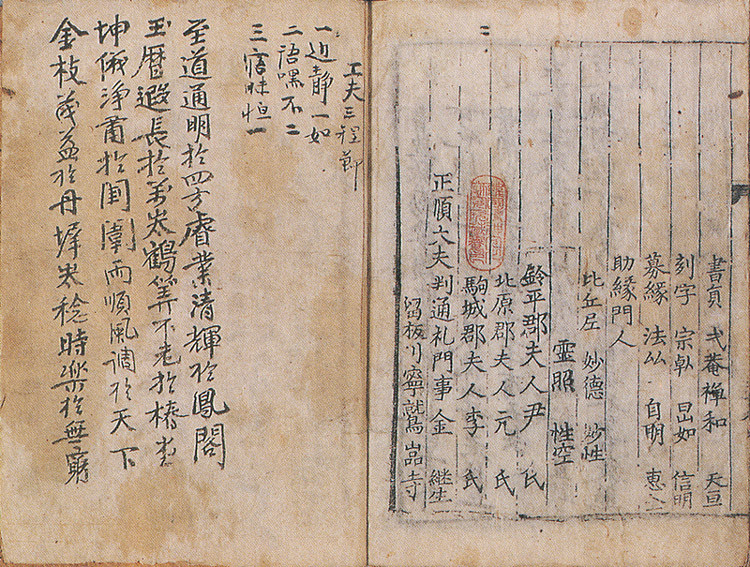 書員 弍菴禪和 天亘
刻字 宗卓 旵如 信明
募緣 法厸 自明 惠全
助緣門人
比丘尼 妙德 妙性
靈照 性空
鈴平郡夫人尹 氏
北原郡夫人元 氏
駒城郡夫人李 氏
正順大夫判通礼門事金 継生
留板川寧鷲嵓寺
二
工夫三程節
一 静一如
二 語嘿不二
三 寤昧恒一
至道通明扵四方睿業清輝扵鳳閣
玉曆遐長扵萬岁鶴筭不老扵椿
坤儀淨肅扵閨闈雨順風調扵天下
金枝茂益扵丹墀岁稔時樂扵無窮